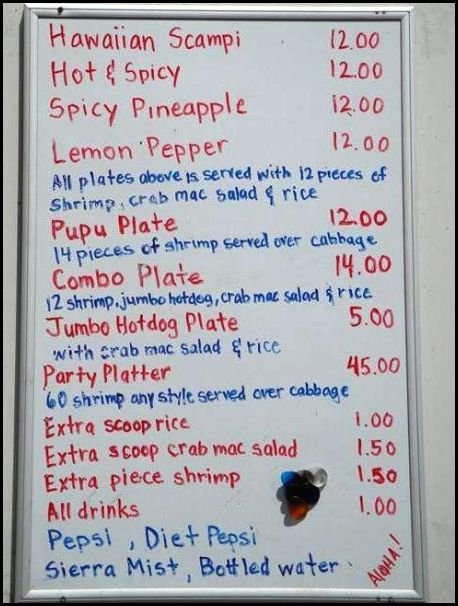 Hawaiian Scampi 12.00
Hot & Spicy 12.00
Spicy Pineapple 12.00
Lemon Pepper 12.00
All plates above is served with 12 pieces of
Shrimp, crab mac salad & rice
Pupu Plate 12.00
14 pieces of shrimp served over cabbage
Combo Plate 14.00
12 shrimp, jumbo hotdog, crab mac salad & rice
Jumbo Hotdog Plate 5.00
with crab mac salad & rice
Party Platter 45.00
60 shrimp any style served over cabbage
Extra scoop rice 1.00
Extra scoop crab mac salad 1.50
Extra piece shrimp 1.50
All drinks 1.00
Pepsi, Diet Pepsi
Sierra Mist, Bottled water
ALOHA!